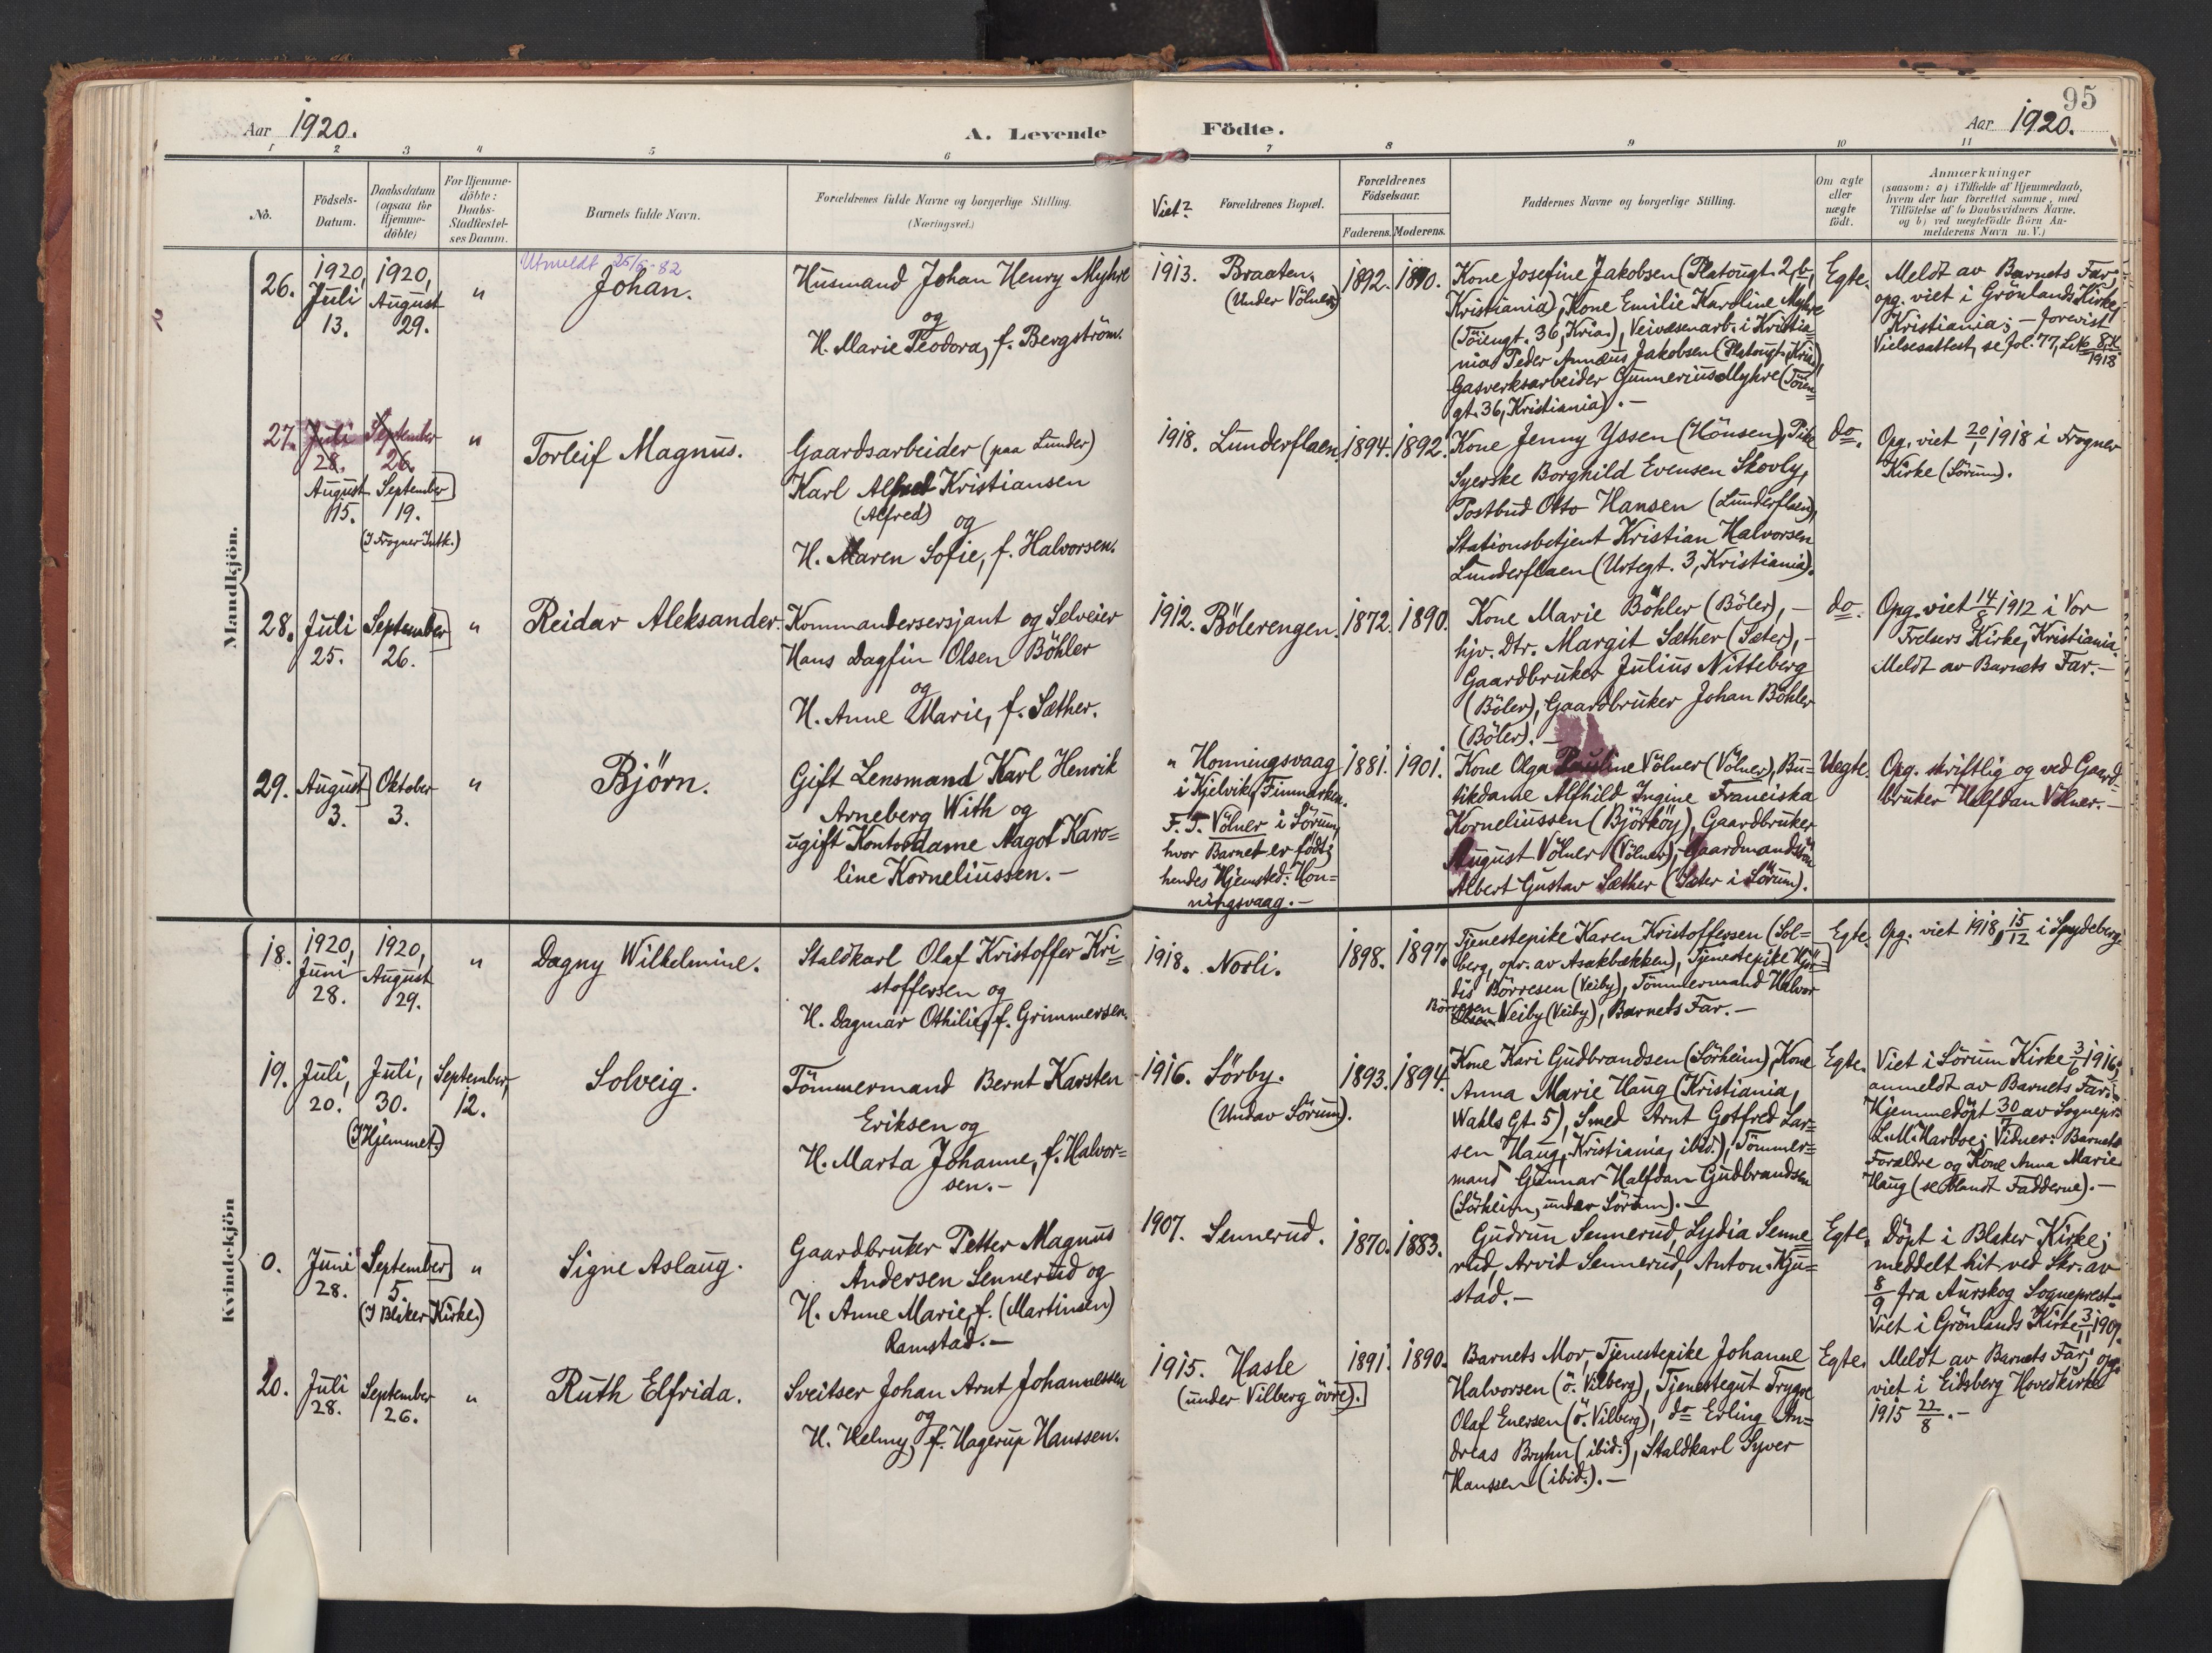 95
Aar 1920.
A. Levende Födte.
Aar 1920.
1 2 3 4 5 6 7 8 9 10 11
No.
Födsels-
Datum.
Daabsdatum
(ogsaa for
Hjemme-
döbte)
For Hjemme-
döbte:
Daabs-
Stadfestel-
ses Datum.
Barnets fulde Navn.
Forældrenes fulde Navne og borgerlige Stilling.
(Næringsvei.)
Viet?
Forældrenes Bopæl.
Forældrenes
Födselsaar.
Faderens. Moderens.
Faddernes Navne og borgerlige Stilling.
Om ægte
eller
uægte
födt.
Anmærkninger
(saasom: a) i Tilfælde af Hjemmedaab,
hvem der har forrettet samme, med
Tilföielse af to Daabsvidners Navne,
og b) ved uægtefödte Börn An-
melderens Navn m. V.)
Mandkjön.
26.
1920,
Juli
13.
1920,
August
29.
"
Utmeldt 25/6-82
Johan.
Husmand Johan Henry Myhre
og
H. Marie Teodora, f. Bergström.
1913.
Braaten.
(Under Völner)
1892. 1890.
Kone Josefine Jakobsen (Platougt. 2 b,
Kristiania), Kone Emilie Karoline Myhre
(Töiengt. 36, Kria), Veivæsenarb. i Kristia=
nia Peder Annæus Jakobsen (Platougt, Kria)
Gasverksarbeider Gunnerius Myhre (Töien=
gt. 36, Kristiania). -
Egte.
Meldt av Barnets Far;
opg. viet i Grönlands Kirke,
Kristiania; - forevist
Vielsesattest, se fol. 77,
1918
27.
Juli
28.
August
15.
September
26.
September
19.
(I Frogner Intk.)
"
Torleif Magnus.
Gaardsarbeider (paa Lunder)
Karl Alfred Kristiansen
(Alfred)
og
H. Maren Sofie, f. Halvorsen.
1918. Lunderflaen. 1894. 1892.
Kone Jenny Yssen (Hönsen), Pike
Syerske Borghild Evensen Skovly,
Postbud Otto Hansen (Lunderflaen),
Stationsbetjent Kristian Halvorsen
Lunderflaen (Urtegt. 3, Kristiania).
do.
Opg. viet 20/1 1918 i Frogner
Kirke (Sörum).
28.
Juli
25.
September
26.
"
Reidar Aleksander.
Kommandersersjant og Selveier
Hans Dagfin Olsen Böhler
og
H. Anne Marie, f. Sæther.
1912. Bölerengen. 1872. 1890.
Kone Marie Böhler (Böler), -
hjv. Dtr. Margit Sæther (Sæter), -
Gaardbruker Julius Nitteberg
(Böler), Gaardbruker Johan Böhler
(Böler). -
do.
Opg. viet 14/8 1912 i Vor
Frelsers Kirke, Kristiania.
Meldt av Barnets Far. -
29.
August
3.
Oktober
3.
"
Björn.
Gift Lensmand Karl Henrik
Arneberg With og
ugift Kontordame Nagot Karo=
line Korneliussen. -
" Honningsvaag
i Kjelvik, Finmarken.
F. T. Völner i Sörum,
hvor Barnet er födt;
hendes Hjemsted: Hon=
ningsvaag. -
1881. 1901.
Kone Olga Pauline Völner (Völner), Bu=
tikdame Alfhild Ingine Franciska
Korneliussen (Björköy), Gaardbruker
August Völner (Völner), Gaardmandssön
Albert Gustav Sæther (Sæter i Sörum).
Uegte.
Opg. skriftlig og ved Gaard=
bruker Halfdan Völner. -
Kvindekjön
18.
1920,
Juni
28.
1920,
August
29.
"
Dagny Wilhelmine.
Staldkarl Olaf Kristoffer Kri=
stoffersen og
H. Dagmar Othilie, f. Grimmersen.
1918. Norli. 1898. 1897.
Tjenestepike Karen Kristoffersen (Sol=
berg, opr. av Asakbækken), Tjenestepike Hjör=
dis Börresen (Veiby), Tömmermand Halvor
Börresen
Olsen Veiby (Veiby), Barnets Far. -
Egte.
Opg. viet 1918, 15/12 i Spydeberg.
19.
Juli,
20.
Juli,
30.
(I Hjemmet.)
September,
12.
Solveig.
Tömmermand Bernt Karsten
Eriksen og
H. Marta Johanne, f. Halvor=
sen. -
1916. Sörby.
(Undav Sörum).
1893. 1894.
Kone Kari Gudbrandsen (Sörheim), Kone
Anna Marie Haug (Kristiania,
Wahls Gt. 5), Smed Arnt Gotfred Lar=
sen Haug, Kristiania, ibid.), Tömmer=
mand Gunnar Halfdan Gudbrandsen
(Sörheim, under Sörum). -
Egte.
Viet i Sörum Kirke 3/6 1916;
anmeldt av Barnets Far.
Hjemmedöpt 30/7 av Sognepr.
L. M. Harboe; Vidner: Barnets
Forældre og Kone Anna Marie
Haug (se blandt Fadderne). -
0.
Juni
28.
September
5.
(I Blaker Kirke)
"
Signe Aslaug.
Gaardbruker Petter Magnus
Andersen Sennerud og
H. Anne Marie, f. (Martinsen)
Ramstad. -
1907. Sennerud. 1870. 1883.
Gudrun Sennerud, Lydia Senne
rud, Arvid Sennerud, Anton Kju=
stad. -
Egte.
Döpt i Blaker Kirke;
meddelt hit ved Skr. av
8/9 fra Aurskog Sogneprest
Viet i Grönlands Kirke 3/11 1907.
20.
Juli
28.
September
26.
"
Ruth Elfrida.
Sveitser Johan Arnt Johannessen
og
H. Helmy, f. Hagerup Hanssen.
1915. Hasle
(under Vilberg övre).
1891. 1890.
Barnets Mor, Tjenestepike Johanne
Halvorsen (ö. Vilberg), Tjenestegut Trygve
Olaf Enersen (ö. Vilberg), do Erling An=
dreas Bryhn (ibid.), Staldkarl Syver
Hanssen (ibid.). -
Egte.
Meldt av Barnets Far; opg.
viet i Eidsberg Hovedkirke
1915 22/8. -